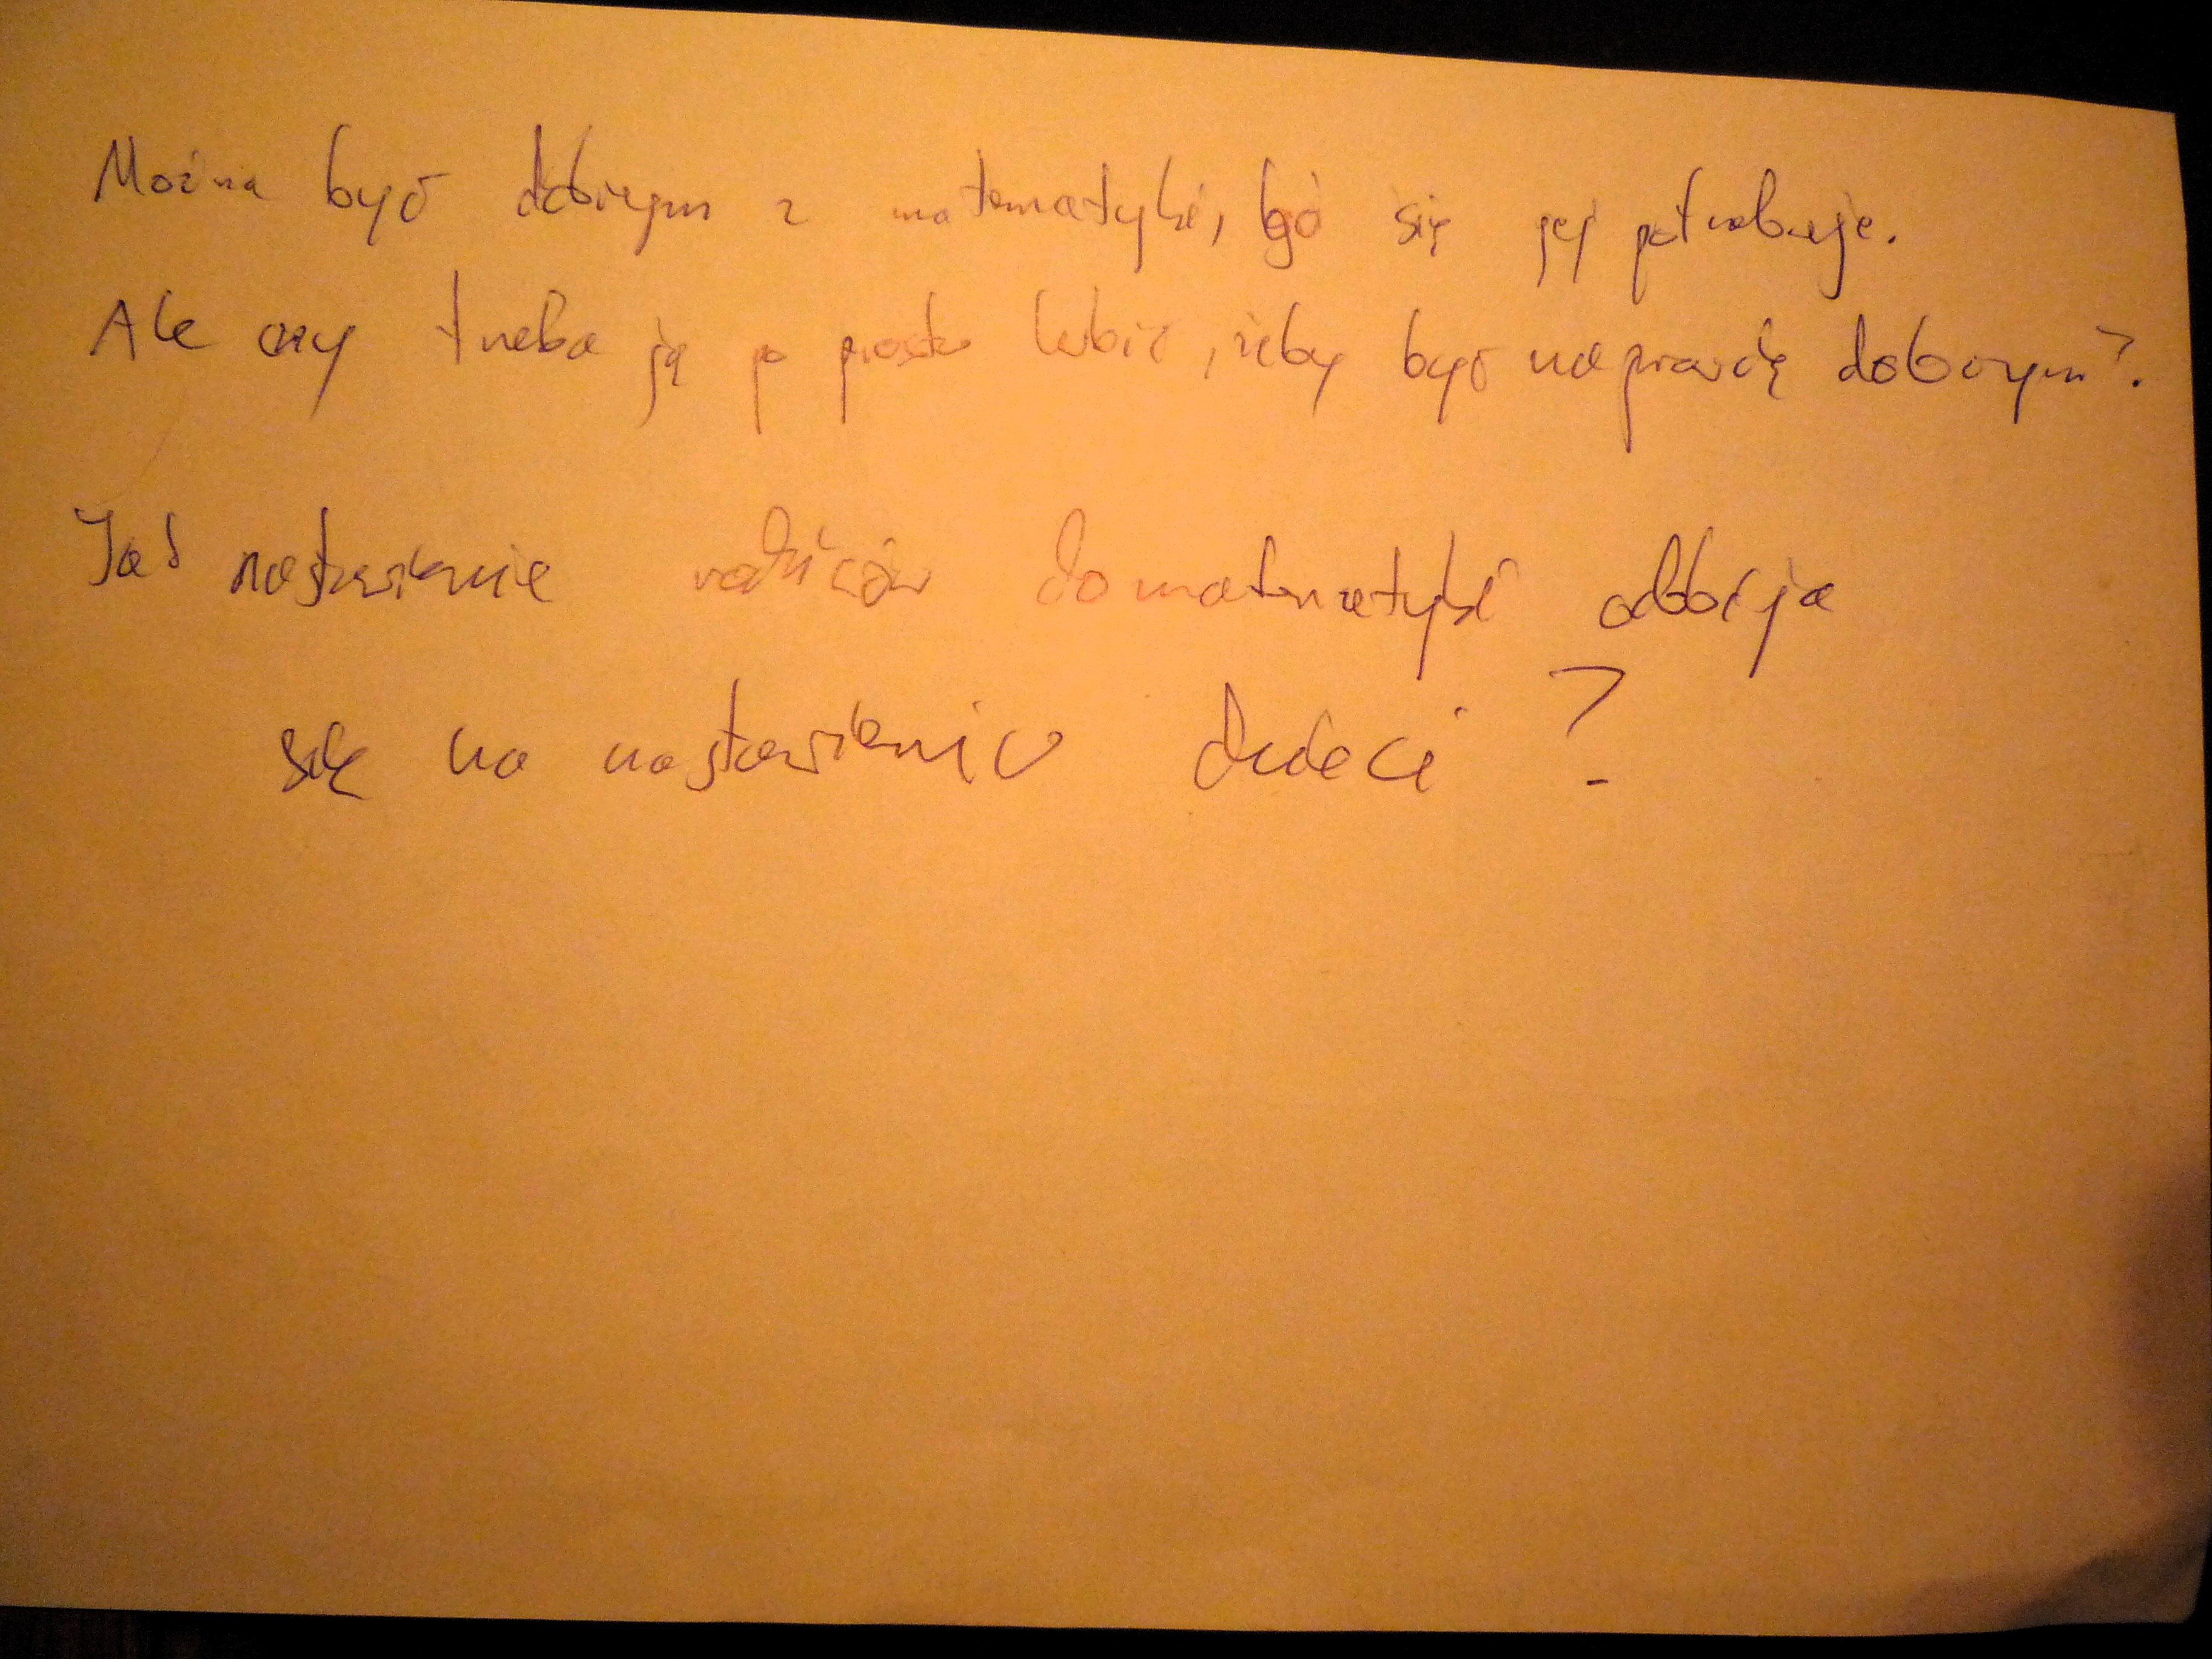 Można być dobrym z matematyki, bo się jej potrzebuje.
Ale czy trzeba ją po prostu lubić, żeby być naprawdę dobrym?
Jak nastawienie rodziców do matematyki odbija
się na nastawieniu dzieci?